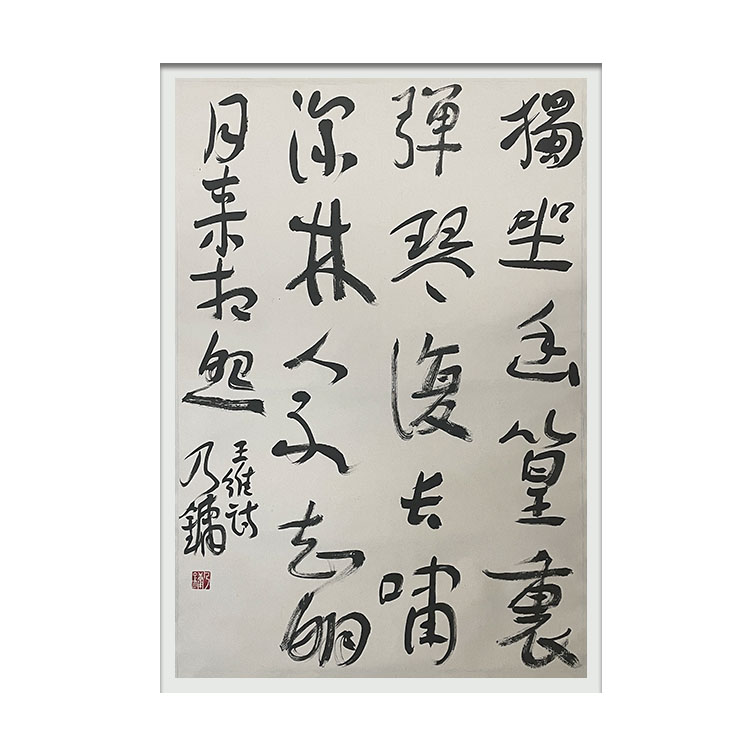 獨坐幽篁裏
弹琴復长啸
深林人不知明
月来相照
王維诗
乃鏞